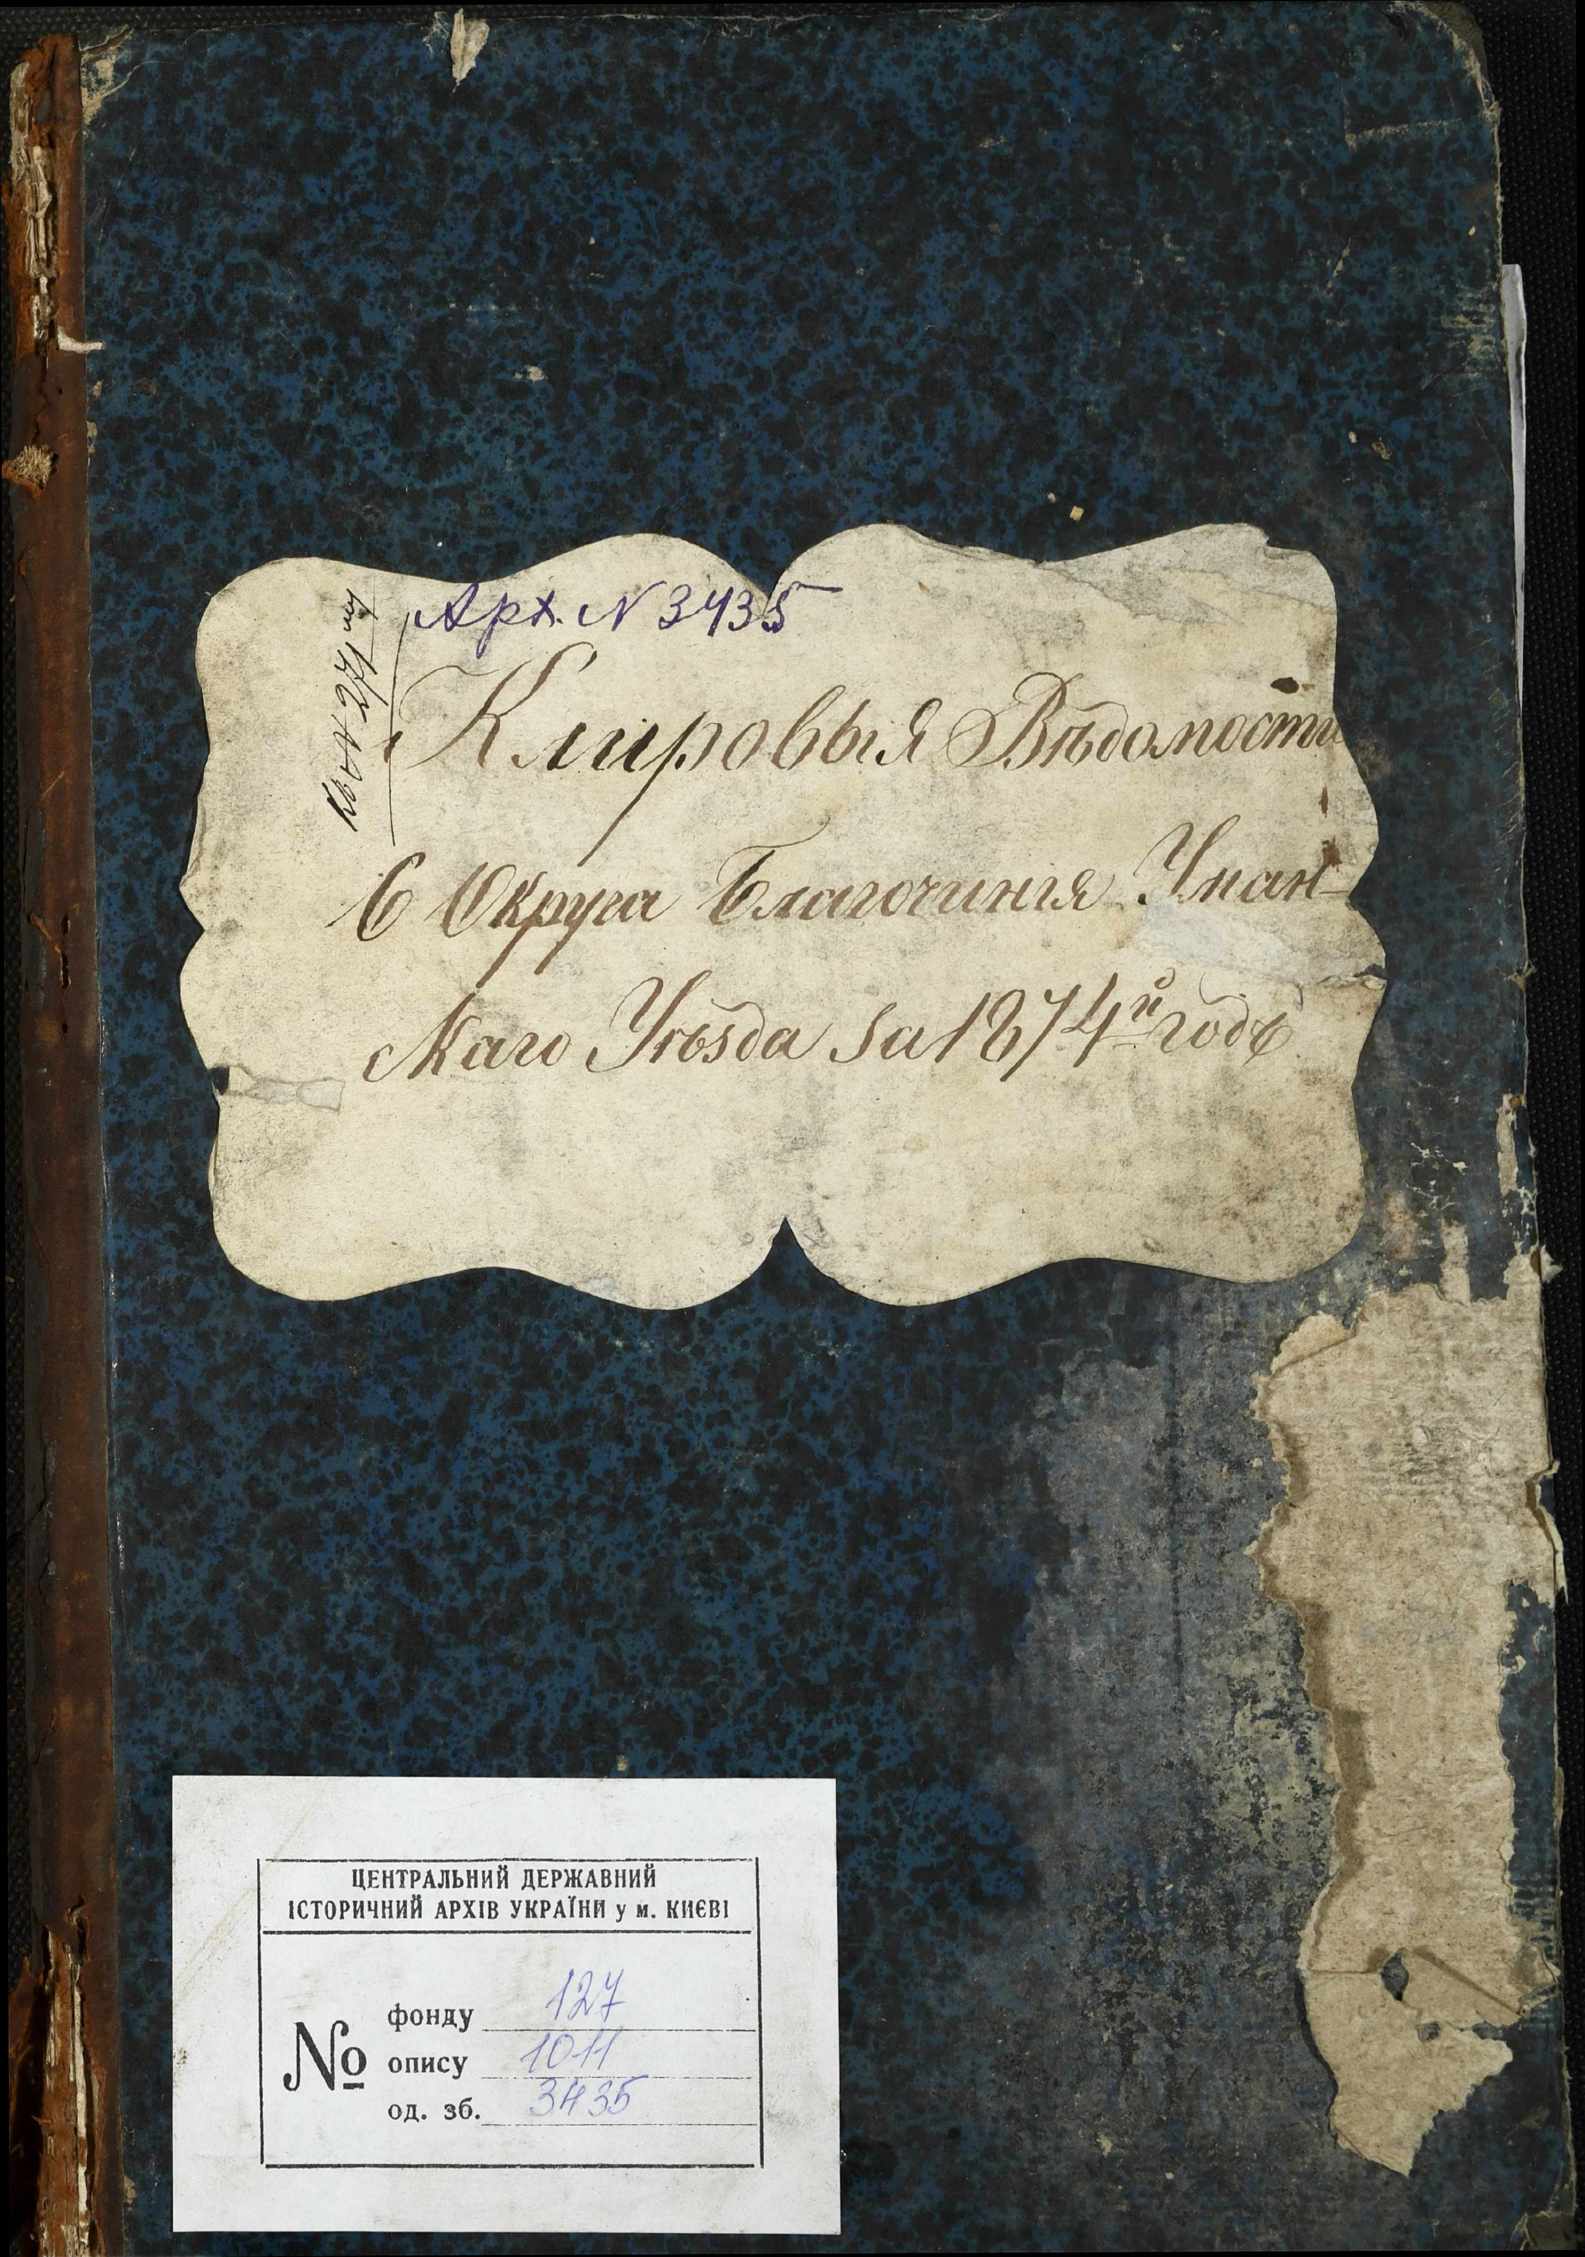 Арх. N 3435
Къ N 271 му
Клировыя Вѣдомости
6 Округа Благочинія Уман-
скаго Уѣзда за 1874й годъ
ЦЕНТРАЛЬНИЙ ДЕРЖАВНИЙ
ІСТОРИЧНИЙ АРХІВ УКРАЇНИ у м. КИЄВІ
№
фонду 127
опису 1011
од. зб. 3435